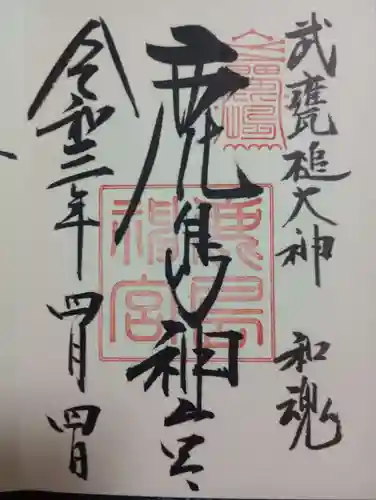 武甕槌大神 和魂
鹿島神宮
令和三年四月四日
鹿島
神宮